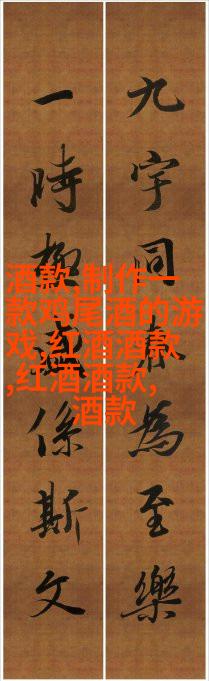 九宇同春為至樂
一時係斯文
酒款,制作一
款鸡尾酒的游
戏,红酒酒款
,红酒酒款,
酒款